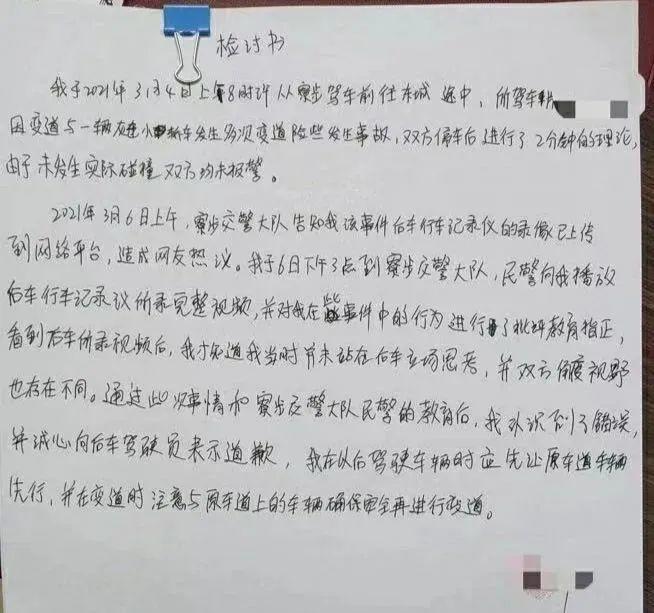 检讨书
我于2021年3月4日上午8时许从寮步驾车前往东城途中，所驾车辆
因变道与一辆小轿车发生多次变道险些发生事故，双方停车后进行了2分钟的理论，
由于未发生实际碰撞双方均未报警。
2021年3月6日上午，寮步交警大队告知我该事件后车行车记录仪的录像已上传
到网络平台，造成网友热议。我于6日下午3点到寮步交警大队，民警向我播放
后车行车记录议所录完整视频，并对我在此事件中的行为进行了批评教育指正，
看到后车所录视频后，我才知道我当时并未站在后车立场思考，并双方角度视野
也存在不同。通过此次事情和寮步交警大队民警的教育后，我认识到了错误，
并诚心向后车驾驶员表示道歉，我在以后驾驶车辆时应先让原车道车辆
先行，并在变道时注意与原车道上的车辆确保安全再进行变道。